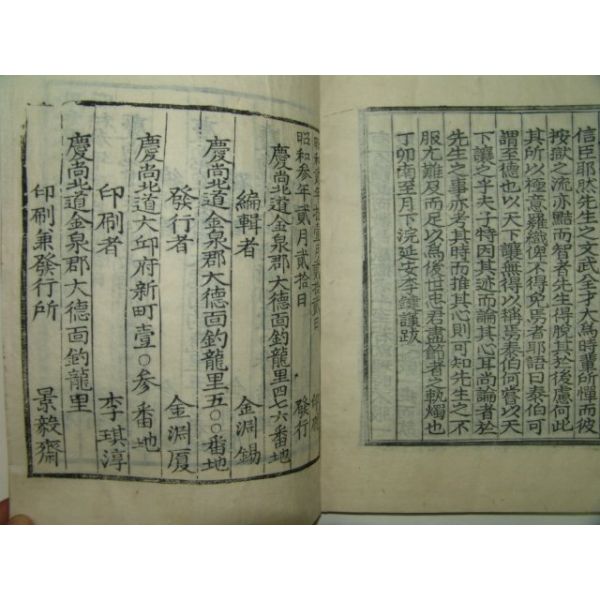 信臣耶然先生之文武全才大為時輩所憚而彼
按獄之流亦黠而智者先生得脫其於後慮何此
其所以種意羅織俾不得免焉者耶語曰泰伯可
謂至德也以天下讓無得以稱焉泰伯何嘗以天
下讓之乎夫子特因其迹而論其心耳尚論者於
先生之事亦考其時而推其心則可知先生之不
服尤難及而足以為後世忠君盡節者之執燭也
丁卯南至月下浣延安李鍾護跋
昭和貳年拾壹月貳拾貳日
昭和參年貳月貳拾日 發行
慶尚北道金泉郡大德面釣龍里四七六番地
編輯者 金淵錫
慶尚北道金泉郡大德面釣龍里五〇〇番地
發行者 金淵廈
慶尚北道大邱府新町壹〇參番地
印刷者 李琪淳
慶尚北道金泉郡大德面釣龍里
印刷兼發行所 景毅齋